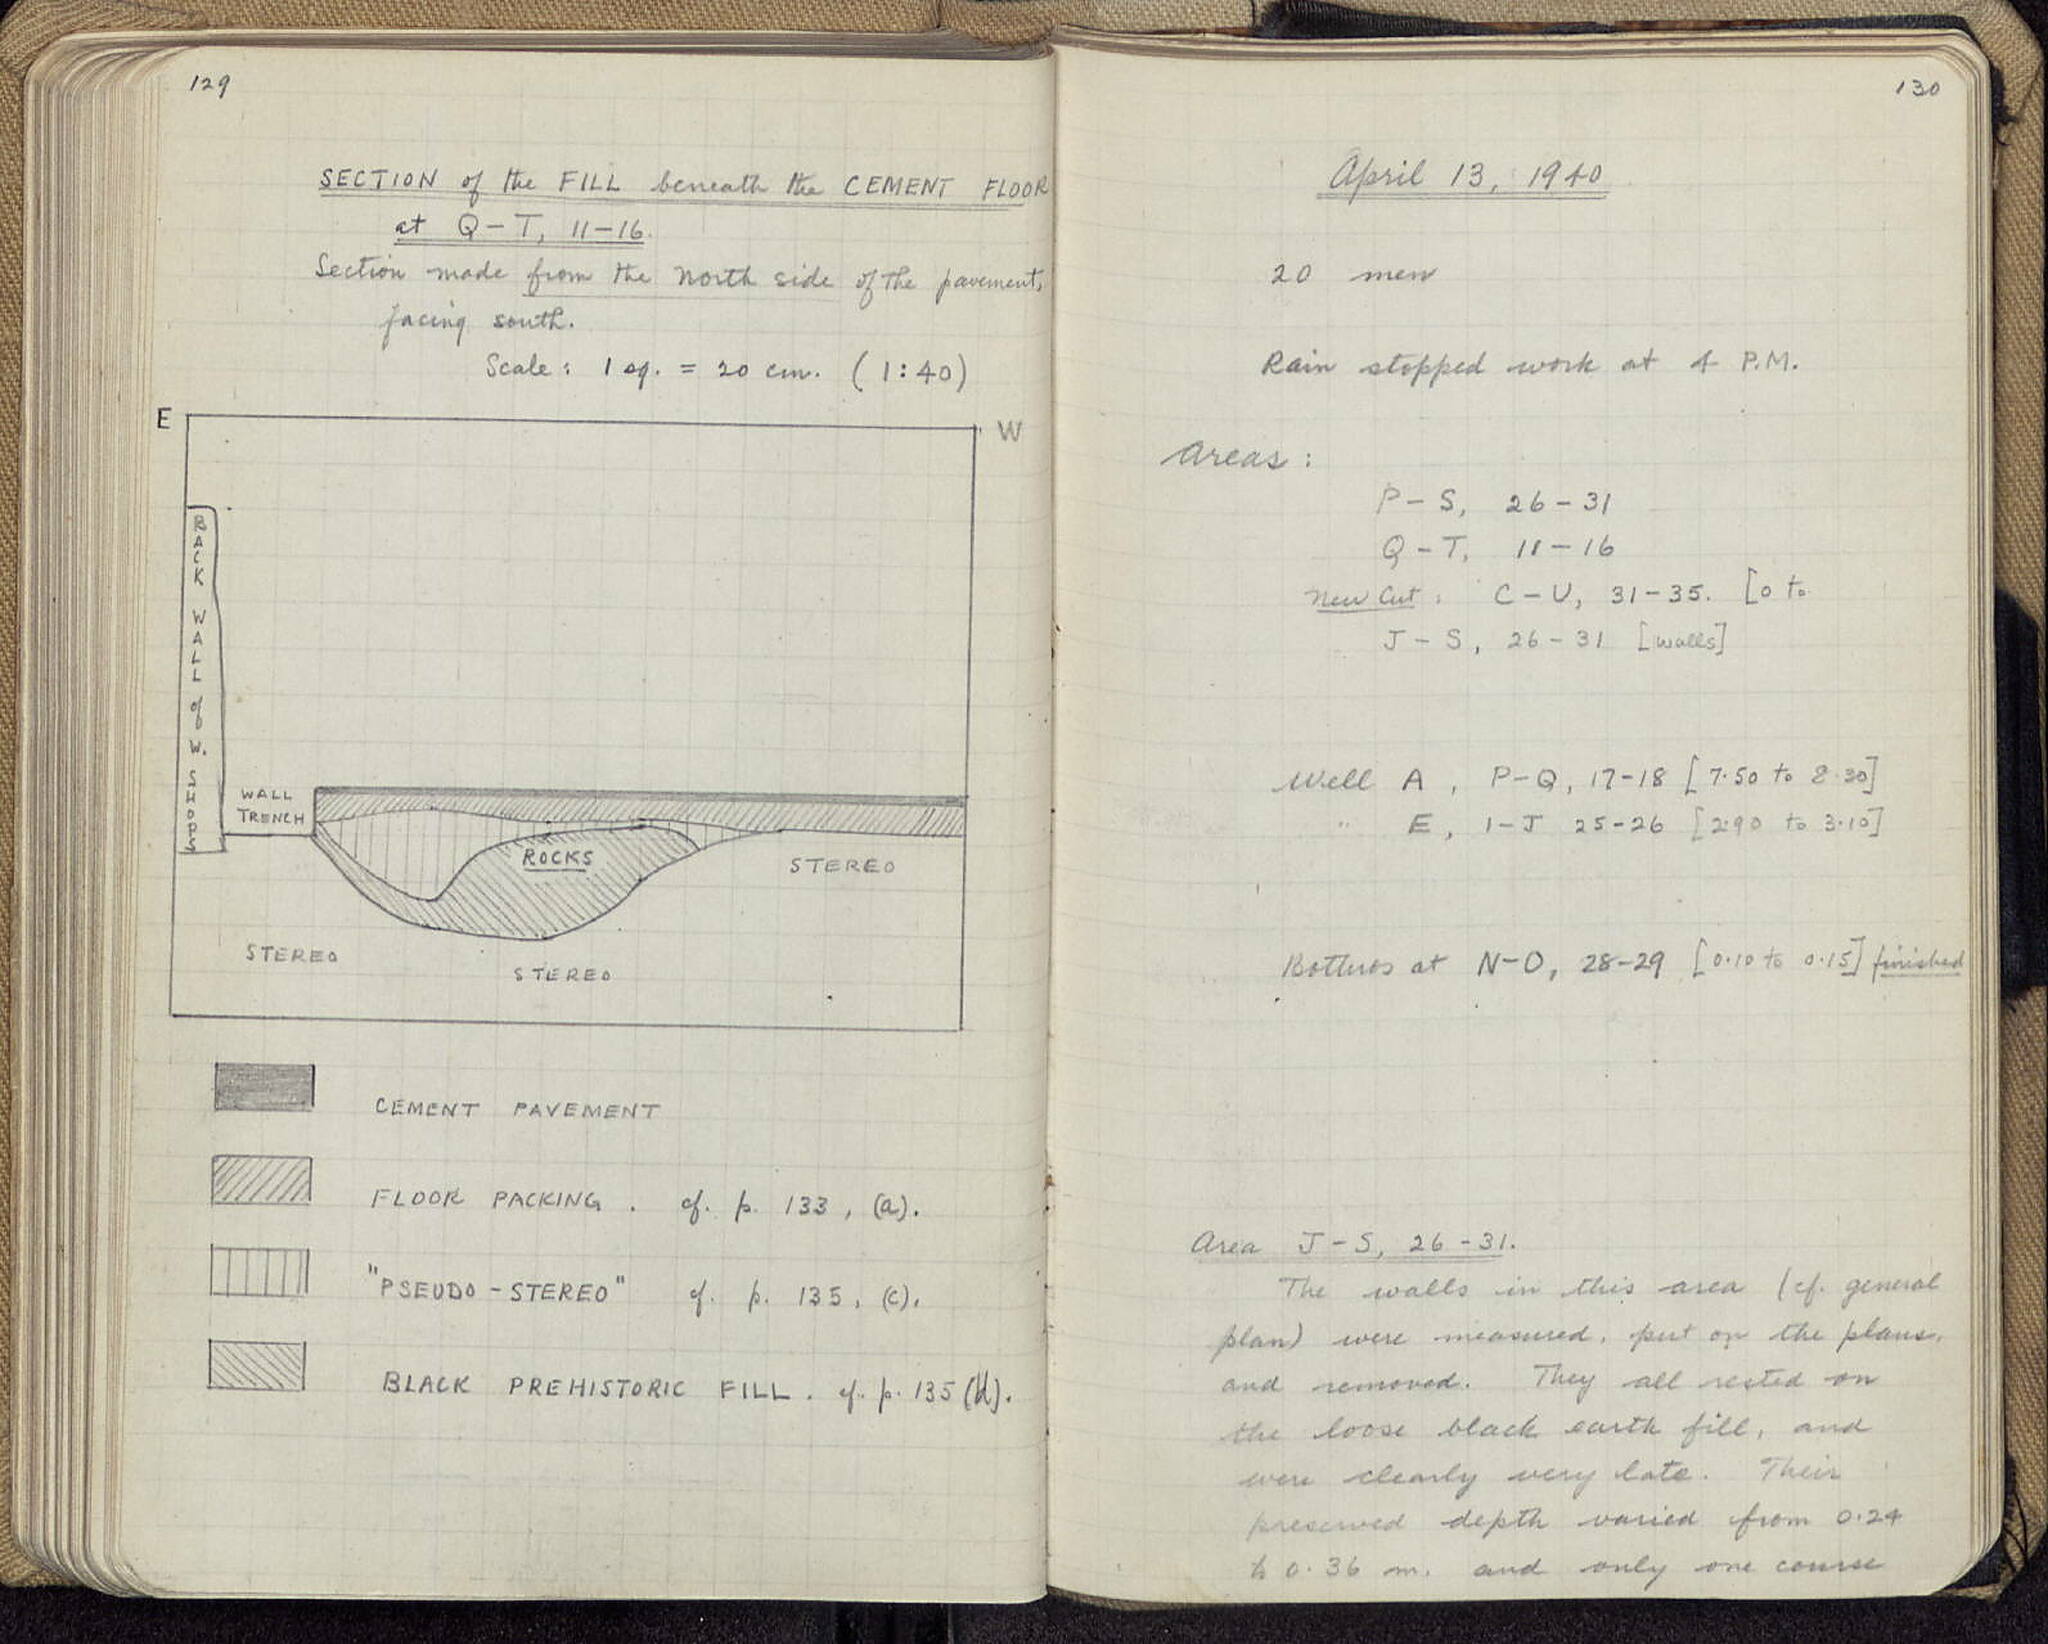 129
SECTION of the FILL beneath the CEMENT FLOOR
at Q-T, 11-16.
Section made from the North side of the pavement,
facing south.
Scale: 1 sq. = 20 cm. (1:40)
E
W
BACK WALL of W. SHOPS
WALL
TRENCH
ROCKS
STEREO
STEREO
STEREO
CEMENT PAVEMENT
FLOOR PACKING. cf. p. 133, (a).
"PSEUDO-STEREO" cf. p. 135, (c).
BLACK PREHISTORIC FILL. cf. p. 135 (d).
130
April 13, 1940
20 men
Rain stopped work at 4 P.M.
Areas:
P-S, 26-31
Q-T, 11-16
New Cut: C-U, 31-35. [0 to
J-S, 26-31 [walls]
Well A, P-Q, 17-18 [7.50 to 8.30]
" E, I-J 25-26 [2.90 to 3.10]
Bothros at N-O, 28-29 [0.10 to 0.15] finished
Area J-S, 26-31.
The walls in this area (cf. general
plan) were measured, put on the plans,
and removed. They all rested on
the loose black earth fill, and
were clearly very late. Their
preserved depth varied from 0.24
to 0.36 m. and only one course